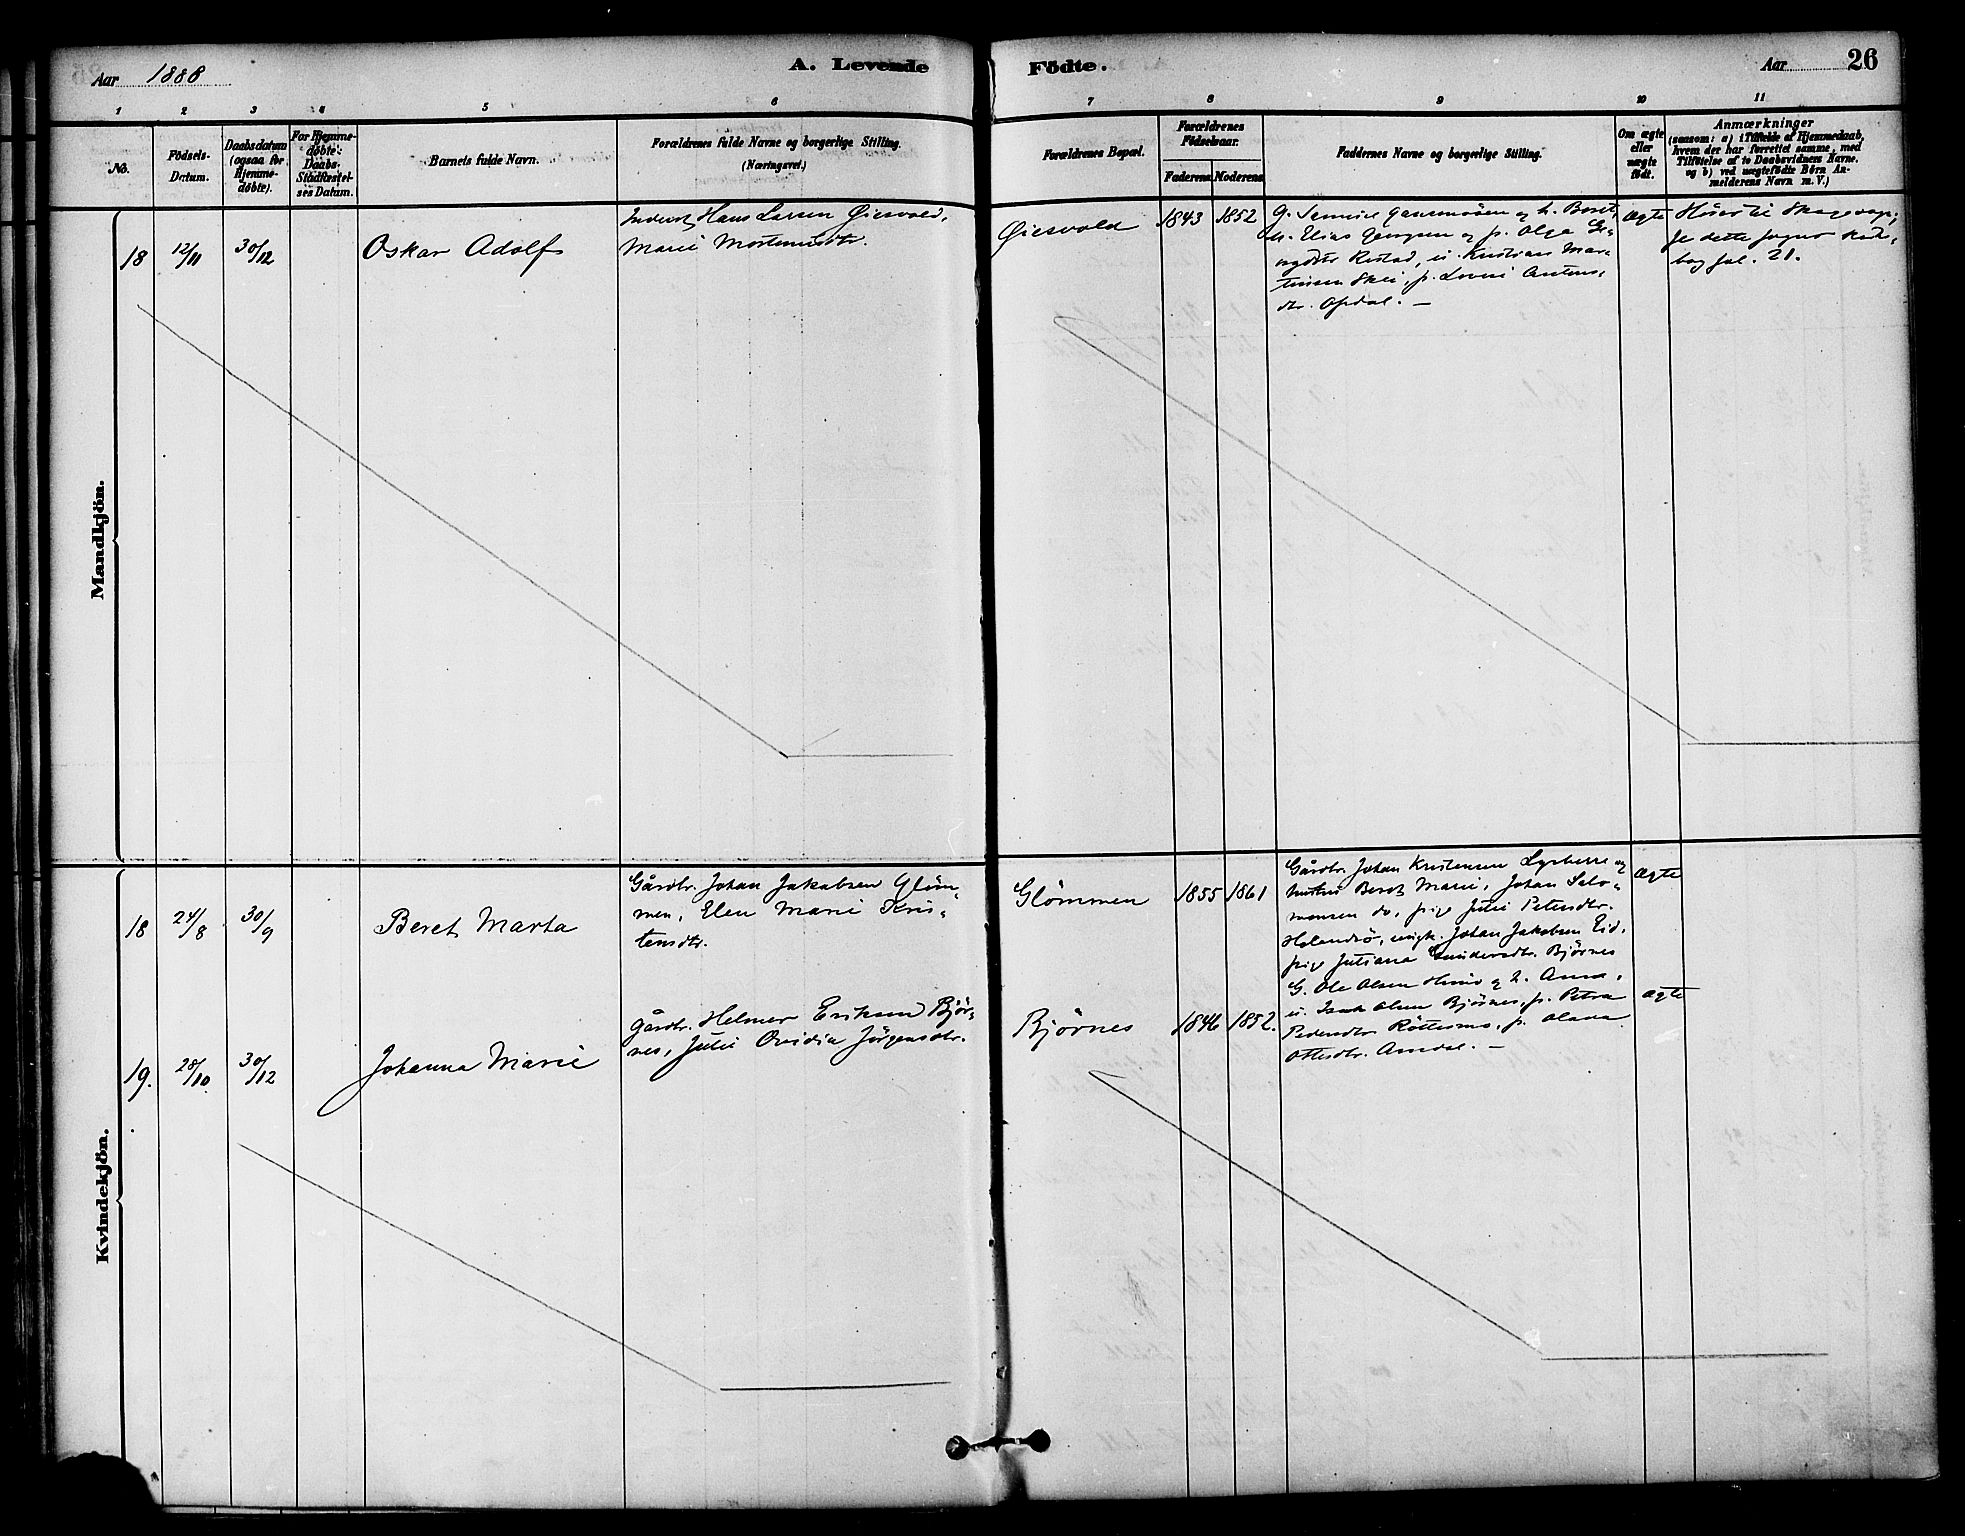 Aar 1888
A. Levende
Födte.
Aar
26
1
2
3
4
5
6
7
8
9
10
11
No.
Födsels-
Datum.
Daabsdatum
(ogsaa for
Hjemme-
døbte).
For Hjemme-
døbte:
Daabs-
Stadfæstel-
ses Datum.
Barnets fulde Navn.
Forældrenes fulde Navne og borgerlige Stilling.
(Næringsvei.)
Forældrenes Bopæl.
Forældrenes
Födselsaar.
Faderens
Moderens
Faddernes Navne og borgerlige Stilling.
Om ægte
eller
uægte
født.
Anmærkninger
(saasom: a) i Tilfælde af Hjemmedaab,
hvem der har forrettet samme, med
Tilföielse af to Daabsvidners Navne,
og b) ved uægtefödte Börn An-
melderens Navn m. V.)
Mandkjön.
18
12/11
30/12
Oskar Adolf
Inderst Hans Larsen Øiesvold,
Marie Mortensdtr.
Øiesvold
1843
1852
og h. Beret,
Elias og p. Olga
Kristian Mar-
tinsen Skei, p. Lovise Antons-
dtr. Opdal. —
Ægte
Hører til
dette sogns
bog fol. 21.
Kvindekjön.
18
24/8
30/9
Beret Marta
Gårdbr. Johan Jakobsen Glöm-
men, Elen Marie Kris-
tensdtr.
Glömmen
1855
1861
Gårdbr. Johan Kristensen og
hustru Beret Marie, Johan Salo-
monsen do, pige Julie Petersdtr.
ungk. Johan Jakobsen Eid,
pige Juliana Gundersdtr. Bjørnes
Ægte
19.
28/10
30/12
Johanna Marie
Gårdbr. Helmer Eriksen Bjør-
nes, Julie Ovidia Jörgensdtr.
Bjørnes
1846
1852.
G. Ole Olsen og h. Anna,
Isak Olsen Bjørnes, p. Petra
Pedersdtr. p. Olava
Ottesdtr. Amdal. —
Ægte